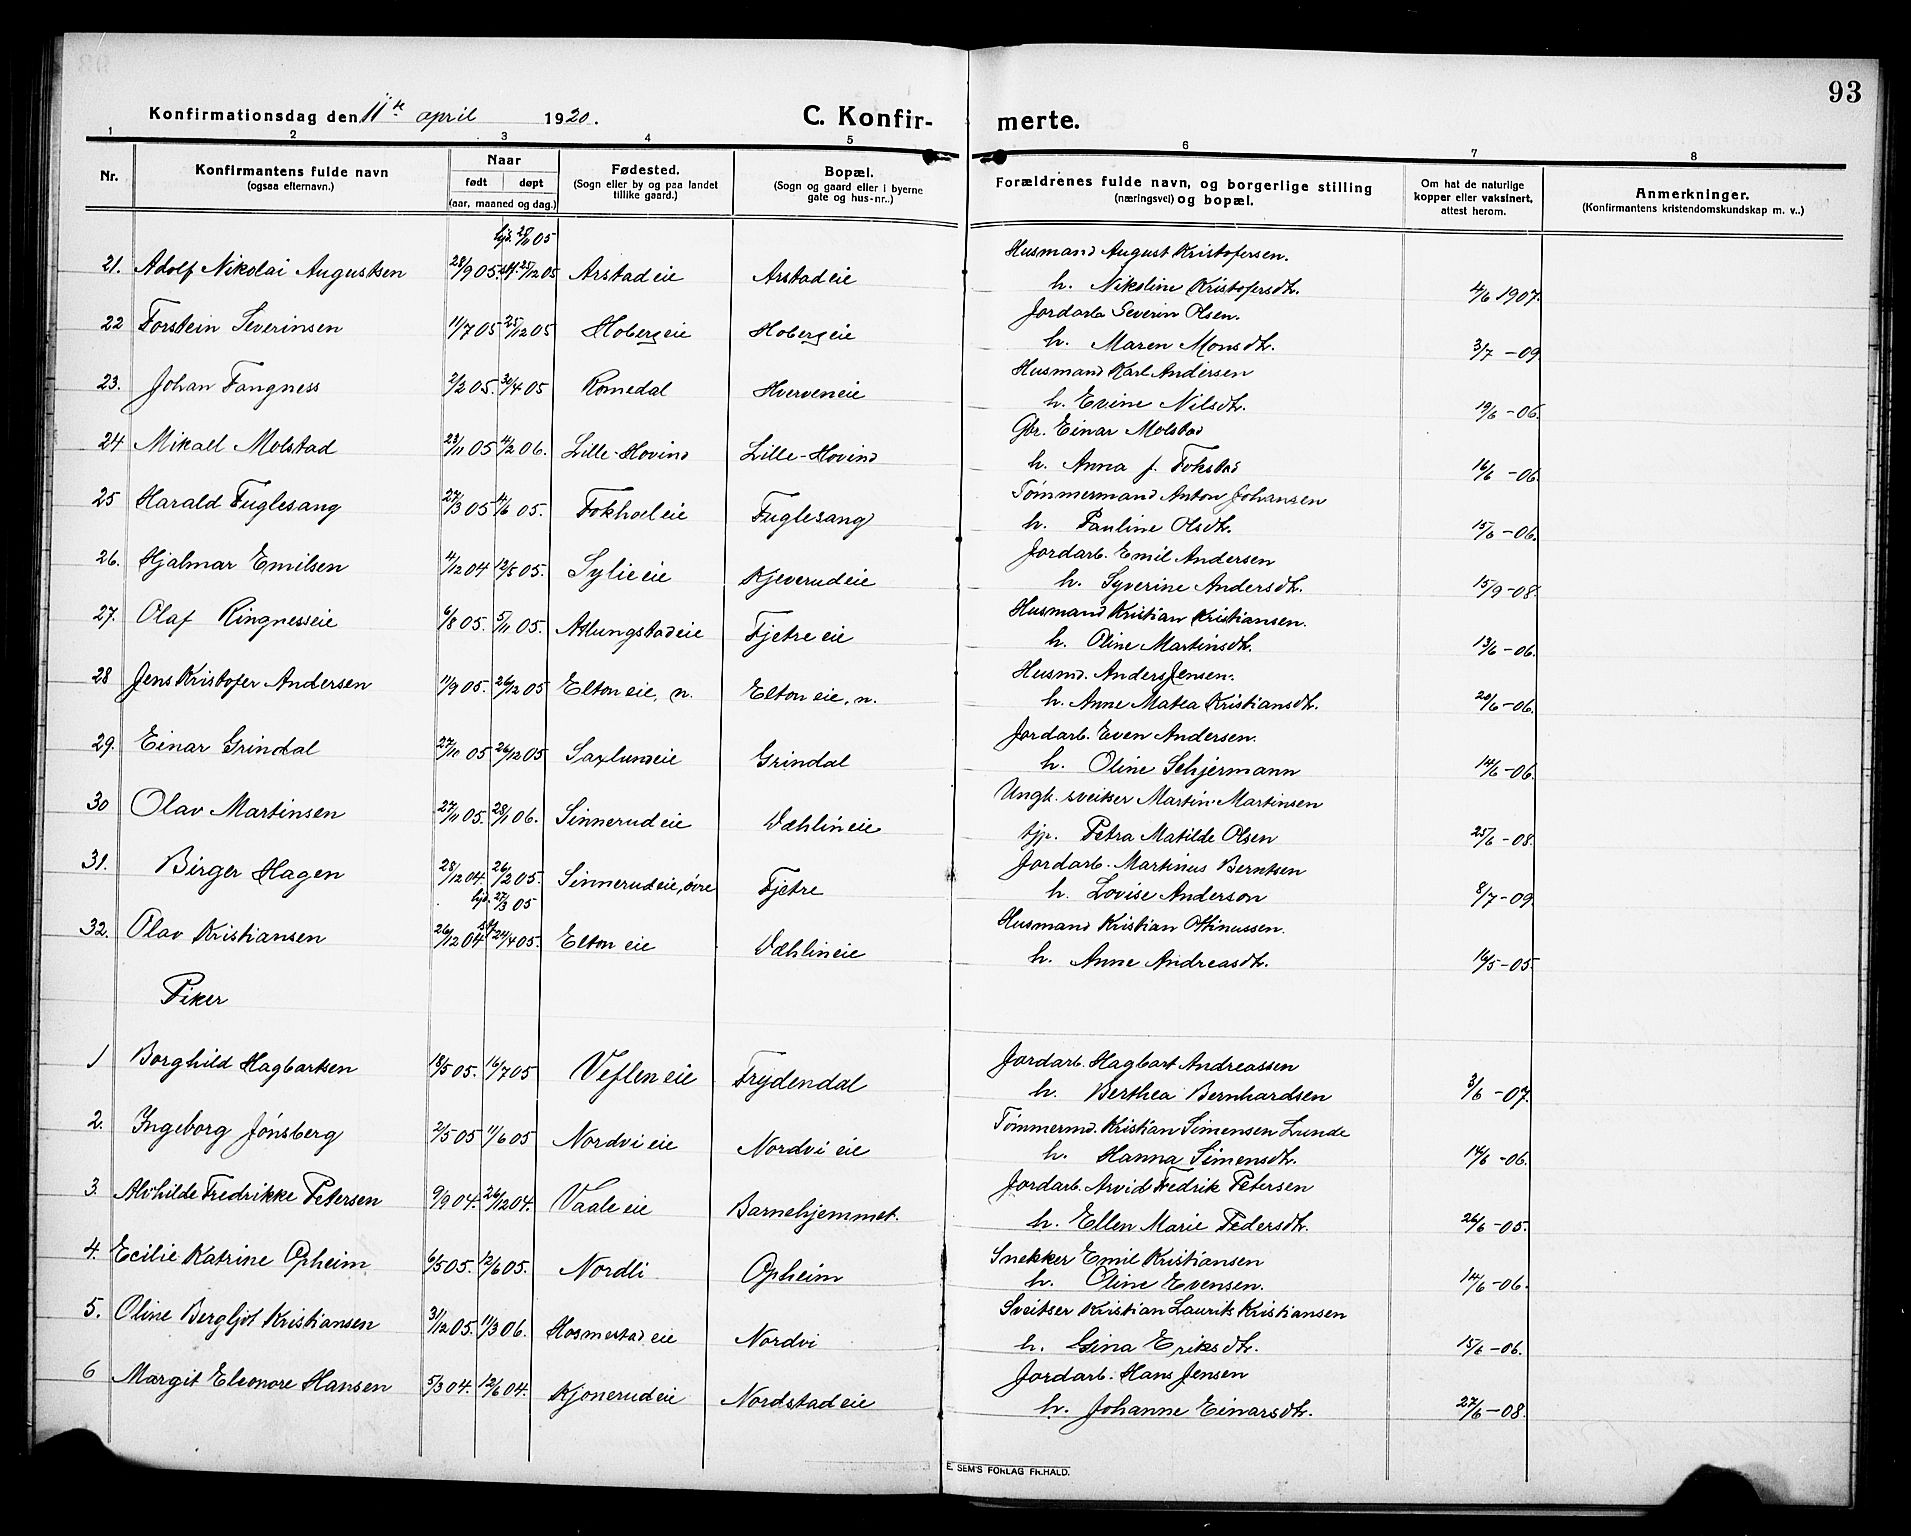 93
Konfirmationsdag den 11te april 1920.
C. Konfir- merte.
1 2 3 4 5 6 7 8
Nr. Konfirmantens fulde navn (ogsaa efternavn.) Naar født døpt (aar, maaned og dag.) Fødested. (Sogn eller by og paa landet tillike gaard.) Bopæl. (Sogn og gaard eller i byerne gate og hus-nr..) Forældrenes fulde navn, og borgerlige stilling (næringsvei) og bopæl. Om hat de naturlige kopper eller vaksinert, attest herom. Anmerkninger. (Konfirmantens kristendomskundskap m. v..)
21. Adolf Nikolai Augustsen 28/9 05. 25/12 05 Arstad eie Arstad eie Husmand August Kristofersen.
h. Nikoline Kristofersdtr. 4/6 1907.
22 Torstein Severinsen 11/7 05 25/12 05 Hoberg eie Hoberg eie Jordarb. Severin Olsen.
h. Maren Monsdtr. 3/7 -09
23. Johan Tangness 2/2 05. 30/4 05 Romedal Hverven eie Husmand Karl Andersen
h. Evine Nilsdtr. 19/6 -06.
24 Mikael Molstad 23/11 05 4/2 06. Lille-Hovind Lille-Hovind Gbr. Einar Molstad
h. Anna J. Tokstad 16/6 -06.
25 Harald Fuglesang 27/3 05 4/6 05. Fokhol eie Fuglesang Tømmermand Anton Johansen
h. Pauline Olsdtr. 15/6 -06.
26. Hjalmar Emilsen 4/12 04 12/5 05. Sylieie Kjeverud eie Jordarb. Emil Andersen
h. Syverine Andersdtr. 15/9 -08.
27. Olaf Ringnesseie 6/8 05. 5/11 05. Atlungstad eie Fjetre eie Husmand Kristian Kristiansen.
h. Oline Martinsdtr. 13/6 -06.
28 Jens Kristofer Andersen 11/9 05. 26/12 05 Elton eie, n. Elton eie, n. Husmd. Anders Jensen.
h. Anne Matea Kristiansdtr. 20/6 -06.
29. Einar Grindal 27/10 05 26/12 05 Saxlund eie Grindal Jordarb. Even Andersen.
h. Oline Schjermann 14/6 -06.
30 Olav Martinsen 27/11 05. 28/1 06. Sinnerud eie Væhlin eie Ungk. sveitser Martin Martinsen
tjp. Petra Matilde Olsen 25/6 -08.
31. Birger Hagen 28/12 04. 26/2 05. Sinnerud eie, øvre Fjetre Jordarb. Martinus Berntsen
h. Lovise Anderson 8/7 -09
32. Olav Kristiansen 26/12 04 27/3 05 24/4 05. Elton eie Væhlin eie Husmand Kristian Othinussen.
h. Anne Andreasdtr. 16/5 -05.
Piker
1 Borghild Hagbartsen 18/5 05. 16/7 05 Veflen eie Frydendal Jordarb. Hagbart Andreassen
h. Berthea Bernhardsen 3/6 -07.
2. Ingeborg Jønsberg 2/5 05 11/6 05 Nordvi eie Nordvi eie Tømmermd. Kristian Simensen Lunde
h. Hanna Simensdtr. 14/6 -06.
3. Alvhilde Fredrikke Petersen 9/9 04. 26/12 04. Vaale eie Barnehjemmet. Jordarb. Arvid Fedrik Petersen
h. Ellen Marie Pedersdtr. 26/6 -05.
4. Ecilie Katrine Opheim 6/5 05. 12/6 05. Nordli Opheim Snekker Emil Kristiansen
h. Oline Evensen. 14/6 -06.
5. Oline Bergljot Kristiansen 31/12 05. 11/3 06. Hosmestad eie Nordvi Sveitser Kristian Laurits Kristiansen
h. Gina Eriksdtr. 15/6 -06.
6 Margit Eleonore Hansen 5/3 04. 12/6 04. Kjonerud eie Nordstad eie Jordarb. Hans Jensen
h. Johanne Einarsdtr. 27/6 -08.
E. SEM'S FORLAG FR.HALD.